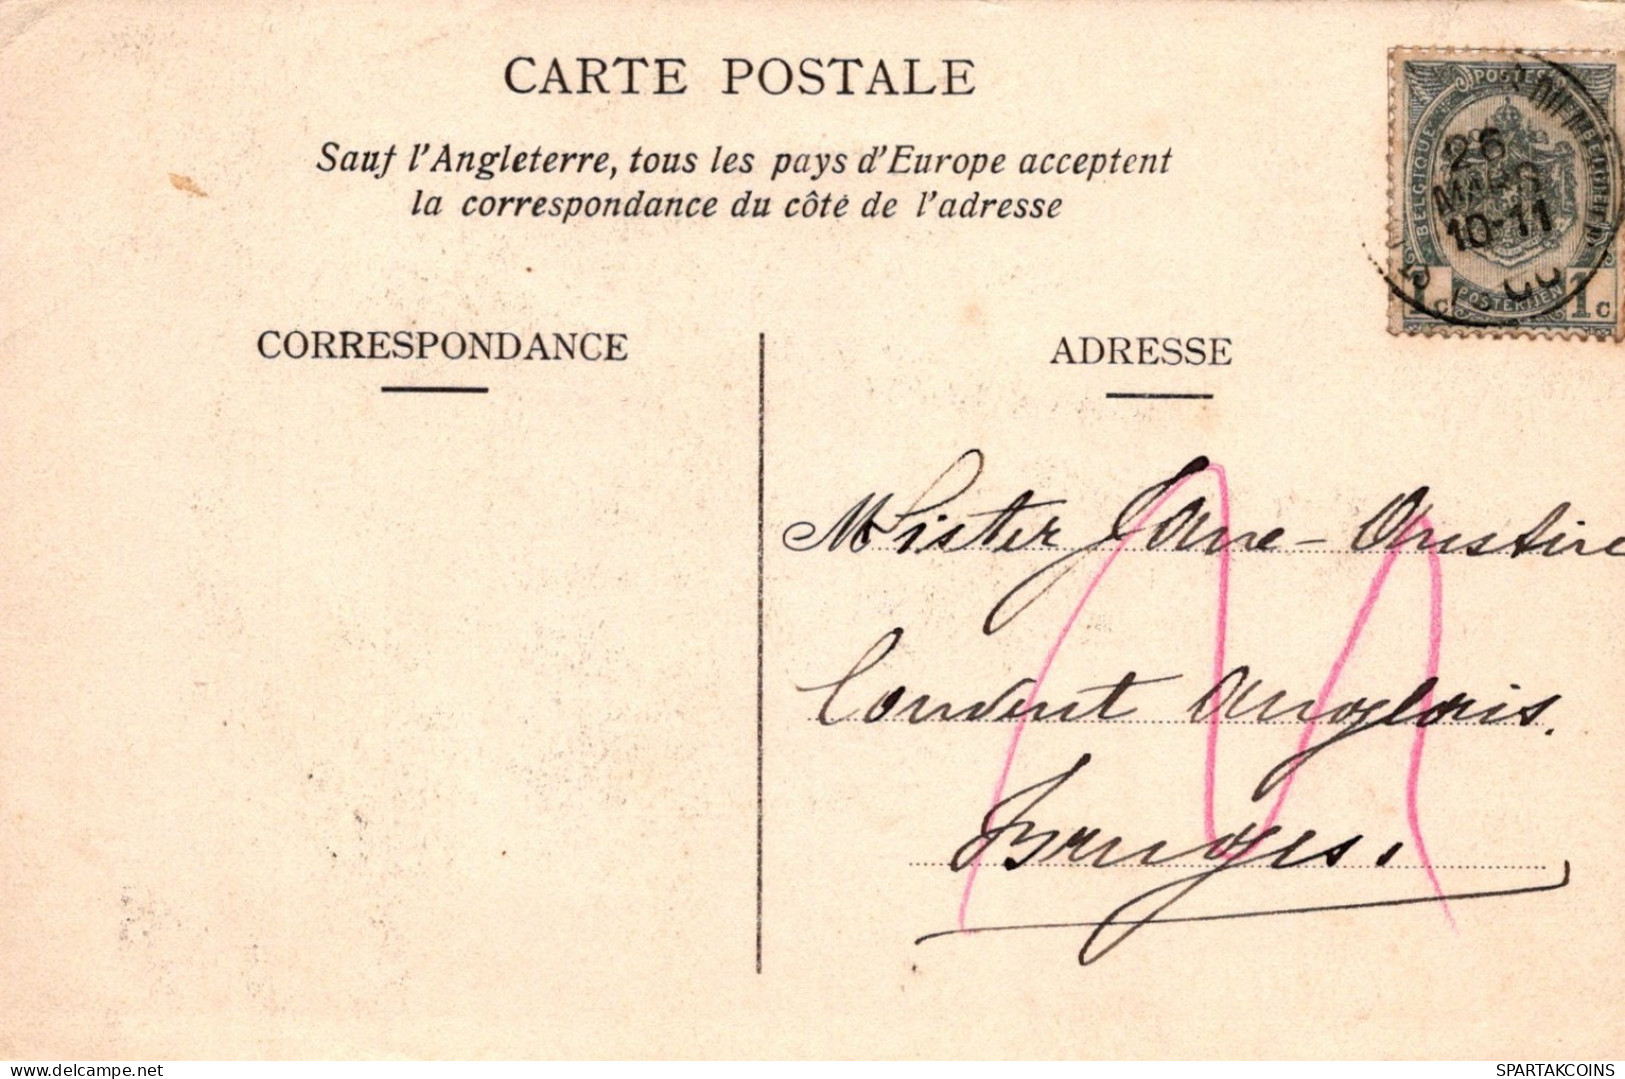 CARTE POSTALE
Sauf l'Angleterre, tous les pays d'Europe acceptent
la correspondance du côté de l'adresse
POSTES
BELGIQUE
BELGIE
26
MARS
10-11
1c POSTERIJEN 1c
CORRESPONDANCE
ADRESSE
Sister Jane-
Convent Anglais.
Bruges.
delcampe.net
SPARTAKCOINS